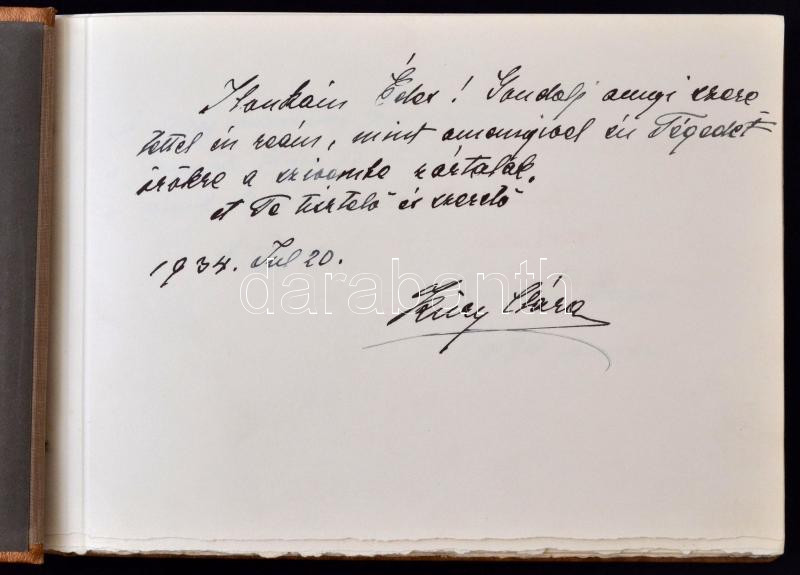 Ilonkám Édes! Gondolj annyi szere
tettel én reám, mint amennyivel én Tégedet
örökre a szivembe zártalak.
A Te tisztelő és szerető
1934. Jul 20.
darabanth
Sára